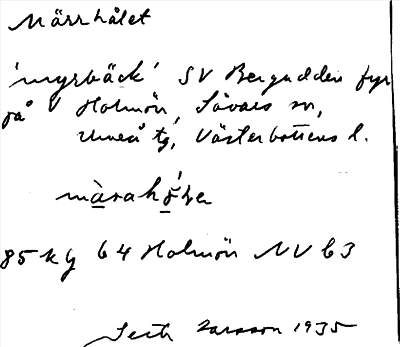 Märrhålet
'myrbäck' SV Bergudden fyr
på Holmön, Sävars sn,
Umeå tg, Västerbottens l.
85 kg 64 Holmön NV 63
Larsson 1935